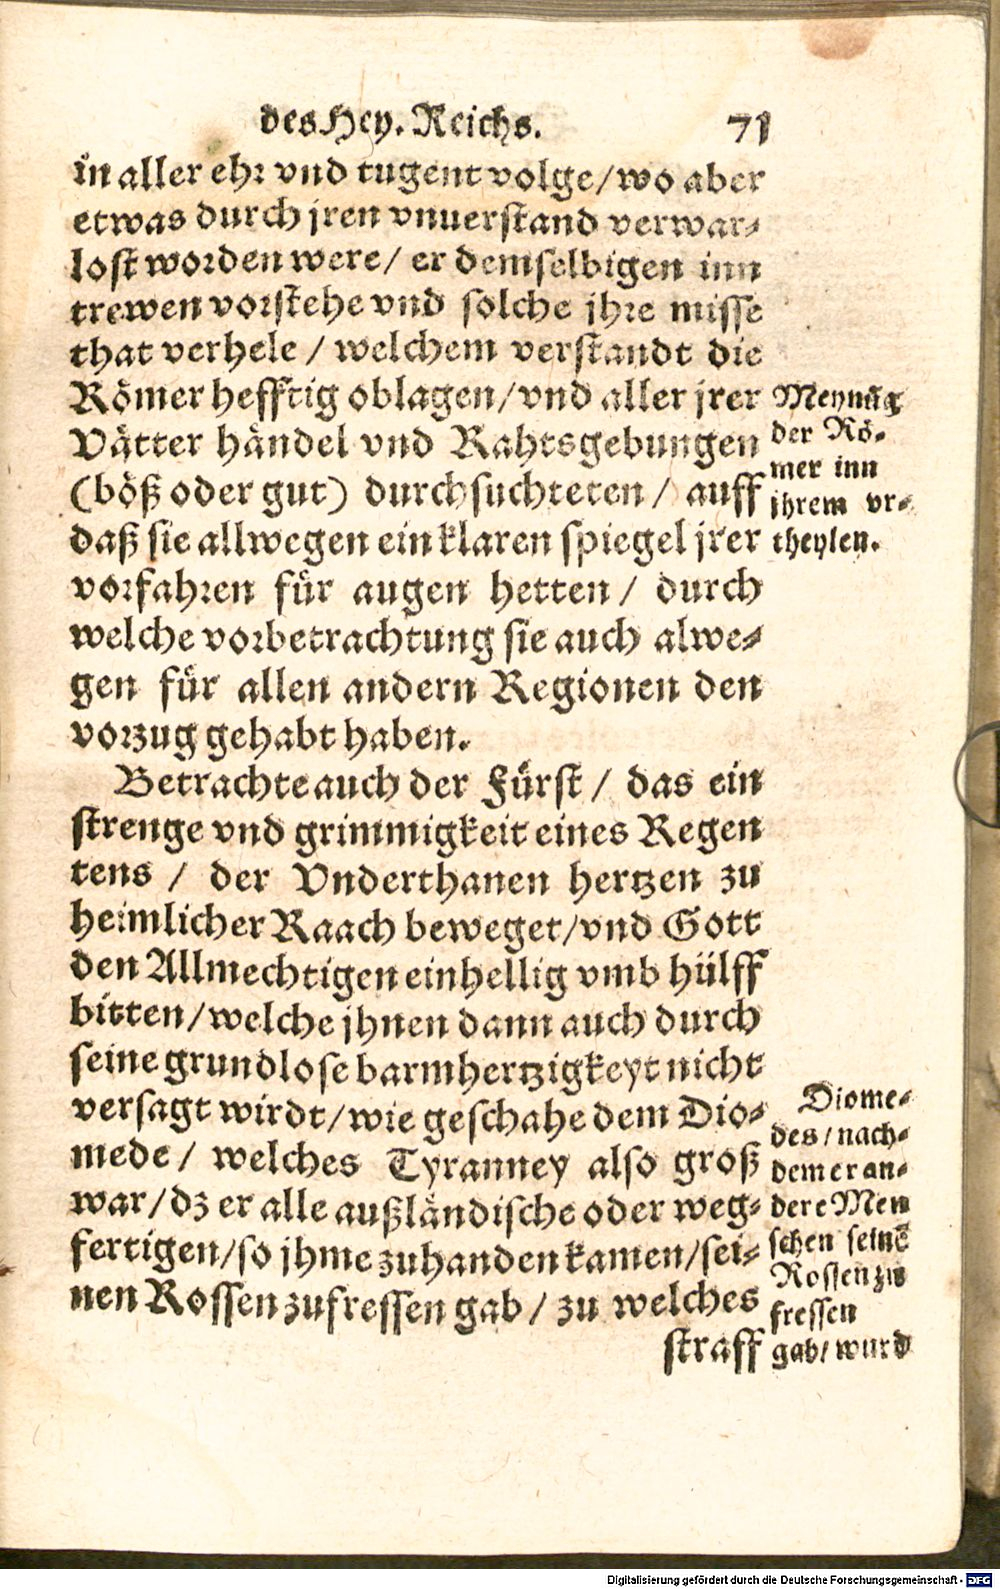 des Hey. Reichs. 71
in aller ehr vnd tugent volge/ wo aber
etwas durch jren vnuerstand verwar-
lost worden were/ er demselbigen inn
trewen vorstehe vnd solche jhre misse
that verhele / welchem verstandt die
Römer hefftig oblagen/ vnd aller jrer
Vätter händel vnd Rahtsgebungen
(böß oder gut) durchsuchteten / auff
daß sie allwegen ein klaren spiegel jrer
vorfahren für augen hetten / durch
welche vorbetrachtung sie auch alwe-
gen für allen andern Regionen den
vorzug gehabt haben.
Meynūg
der Rö-
mer inn
jhrem vr-
theylen.
Betrachte auch der Fürst / das ein
strenge vnd grimmigkeit eines Regen
tens / der Vnderthanen hertzen zu
heimlicher Raach beweget/ vnd Gott
den Allmechtigen einhellig vmb hülff
bitten/ welche jhnen dann auch durch
seine grundlose barmhertzigkeyt nicht
versagt wirdt/ wie geschahe dem Dio-
mede / welches Tyranney also groß
war/ dz er alle außländische oder weg-
fertigen/ so jhme zuhanden kamen/ sei-
nen Rossen zufressen gab / zu welches
straff
Diome-
des / nach-
dem er an-
dere Men
schen seinē
Rossen zu
fressen
gab/ wurd
Digitalisierung gefördert durch die Deutsche Forschungsgemeinschaft - DFG